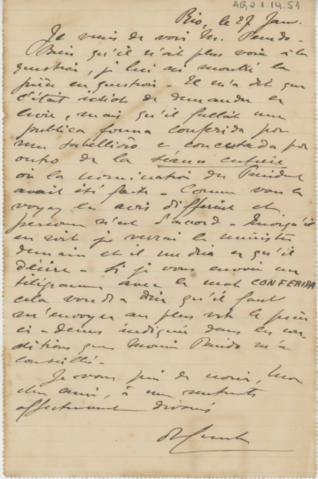 AG.2.1.14.51
Rio, le 27 Janv.
Je viens de voir M. Penedo.
Bien qu'il n'ait plus voix à la
question, je lui ai montré la
pièce en question. Il m'a dit que
c'était ridicule de demander
mais qu'il fallait une
publica forma conferida por
um tabellião e concertada por
outro de la séance entière
où la nomination du Président
avait été faite. Comme vous le
voyez les avis diffèrent et
personne n'est d'accord. Quoiqu'il
en soit je verrai le ministre
demain et il me dira ce qu'il
désire. Si je vous envoie un
télégramme avec le mot CONFERIDA
cela voudra dire qu'il faut
m'envoyer au plus vite la pièce
ci-dessus indiquée dans les con
ditions que Penedo m'a
conseillé.
Je vous prie de croire, mon
cher ami, à mes sentiments
affectueux dévoués